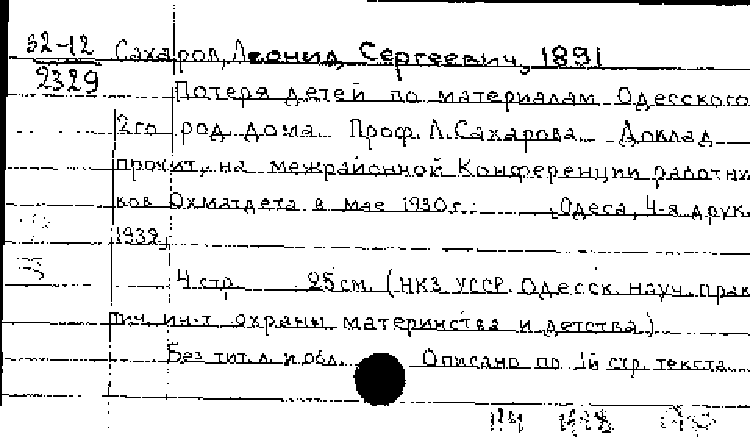 32-12 Сахаров, Леонид Сергеевич, 1891
2329
Потеря детей по материалам Одесского
2го род. дома. Проф. Л. Сахарова. Доклад
прочит. на межрайонной Конференции работни
ков Охматдета в мае 1930 г. Одеса, 4-я друк.
1932.
4 стр. 25 см. (НКЗ УССР. Одесск. науч. прак
тич. ин-т охраны материнства и детства)
Без тит. л. и обл. Описано по 1й стр. текста